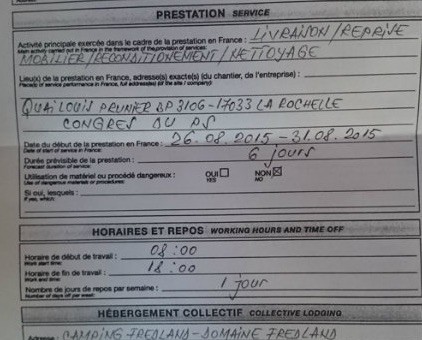 PRESTATION SERVICE
Activité principale exercée dans le cadre de la prestation en France : LIVRAISON/REPRISE
Main activity carried out in France in the framework of the provision of services:
MOBILIER/RECONDITIONEMENT/NETTOYAGE
Lieu(x) de la prestation en France, adresse(s) exacte(s) (du chantier, de l'entreprise) :
Place(s) of service performance in France, full address(es) (of the site / company)
QUAI LOUIS PRUNIER BP 3106-17033 LA ROCHELLE
CONGRES DU PS
Date du début de la prestation en France : 26.08.2015-31.08.2015
Date of start of service in France:
Durée prévisible de la prestation : 6 jours
Forecast duration of service:
Utilisation de matériel ou procédé dangereux : OUI NON
Use of dangerous materials or procedures: YES NO
Si oui, lesquels :
If yes, which:
HORAIRES ET REPOS WORKING HOURS AND TIME OFF
Horaire de début de travail : 08:00
Work start time:
Horaire de fin de travail : 18:00
Work end time:
Nombre de jours de repos par semaine : 1 jour
Number of days off per week:
HÉBERGEMENT COLLECTIF COLLECTIVE LODGING
Adresse : CAMPING FREDLAND-DOMAINE FREDLAND